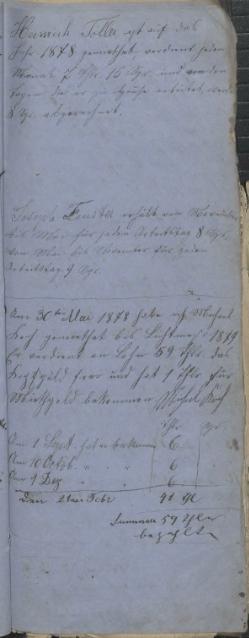 Heinrich Toller ist auf das
Jahr 1878 gemiethet, verdient jeden
Monat 7 Thlr. 15 Sgr. und von den
Tagen da er zu Hause arbeitet, werden
8 Sgr. abgerechnet.
erhält von November
bis Mai für jeden Arbeitstag 8 Sgr.
von Mai bis November für jeden
Arbeitstag 9 Sgr.
Am 30ten Mai 1878 habe ich Michel
Koch gemiethet bis Lichtmeß 1879
Er verdient an Lohn 59 Thlr. das
frei und hat 1 Thlr für
Miethgeld bekommen Michel Koch
Thlr Sgr.
Am 1 Sept. hat er bekommen 6
Am 10 Octob. " " 6
Am 9 Dez " " 6
Den 2ten Febr 41
Summa 59 Thler
bezahlt